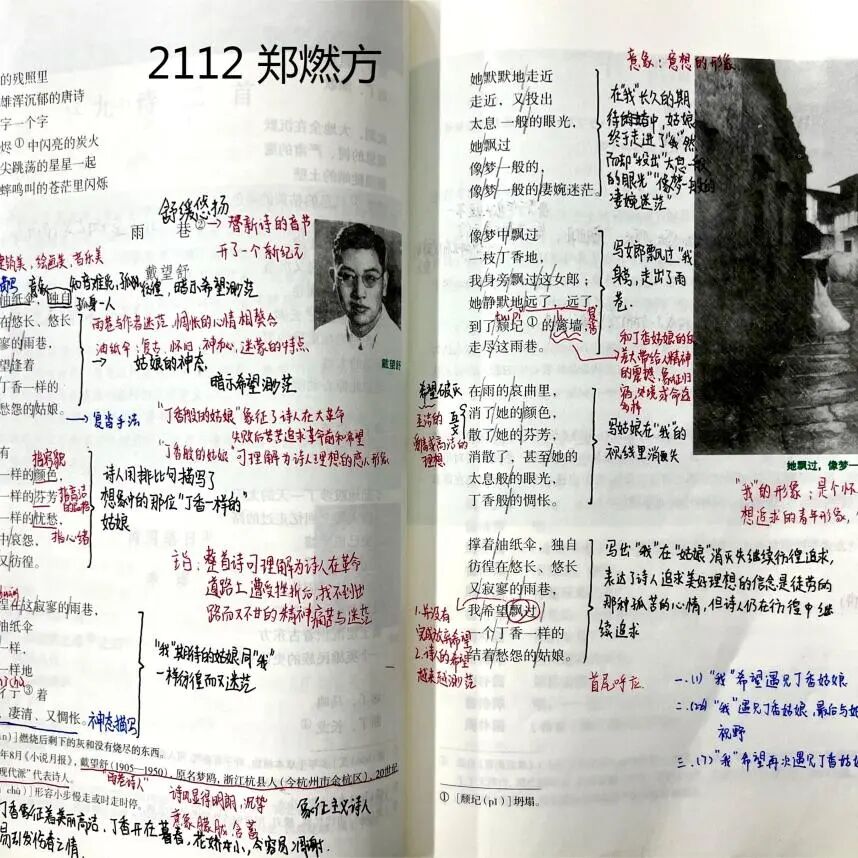 2112 郑燃方
的残照里
雄浑沉郁的唐诗
字一个字
烬①中闪亮的炭火
尖跳荡的星星一起
蟀鸣叫的苍茫里闪烁
舒缓悠扬
雨 巷②
替新诗的音节
开了一个新纪元
戴望舒
绘画美,音乐美
彷徨,暗示希望渺茫
油纸伞,独自
孤身一人
在悠长、悠长
寥的雨巷,
望逢着
丁香一样的
愁怨的姑娘。
雨巷与作者迷茫、惆怅的心情相契合
油纸伞:复古、怀旧、神秘、迷蒙的特点
姑娘的神态
暗示希望渺茫
戴望舒
复沓手法
"丁香般的姑娘"象征了诗人在大革命
失败后苦苦追求革命前和希望
"丁香般的姑娘"可理解为诗人理想的恋人形象
有
一样的颜色,
一样的芬芳,
一样的忧愁,
中哀怨,
又彷徨。
指容貌
指高洁的品格
指心绪
诗人用排比句描写了
想象中的那位"丁香一样的"
姑娘
主旨:整首诗可理解为诗人在革命
道路上遭受挫折后,找不到出
路而又不甘的精神病苦与迷茫
在这寂寥的雨巷,
油纸伞
一样,
一样地
亍③着
、凄清、又惆怅。
神态描写
"我"期待的姑娘同"我"
一样彷徨而又迷茫
]燃烧后剩下的灰和没有烧尽的东西。
年8月《小说月报》。戴望舒(1905—1950),原名梦鸥,浙江杭县人(今杭州市余杭区),20世纪
现代派"代表诗人。
"雨巷诗人"
chù)]形容小步慢走或时走时停。
诗风显得明朗,沉挚
意象朦胧含蓄
象征主义诗人
丁香象征着美丽高洁,丁香开在暮春,花娇
易引发伤春之情
她默默地走近
走近,又投出
太息一般的眼光,
她飘过
像梦一般的,
像梦一般的凄婉迷茫。
意象:意想的形象
在"我"长久的期
待的姑娘
终于走进了"我"然
而却"投出"太息一般
的眼光""像梦一般的
凄婉迷茫"
像梦中飘过
一枝丁香地,
我身旁飘过这女郎;
她静默地远了,远了,
到了颓圮①的篱墙,
走尽这雨巷。
写女郎飘过"我"
身旁,走出了雨
巷.
和丁香姑娘的
在雨的哀曲里,
消了她的颜色,
散了她的芬芳,
消散了,甚至她的
太息般的眼光,
丁香般的惆怅。
希望破灭
写姑娘在"我"的
视线里消失
她飘过,像梦一
"我"的形象:是个怀
想追求的青年形象,
撑着油纸伞,独自
彷徨在悠长、悠长
又寂寥的雨巷,
我希望飘过
一个丁香一样的
结着愁怨的姑娘。
写出"我"在"姑娘"消失继续彷徨追求,
表达了诗人追求美好理想的信念是徒劳的
那种孤苦的心情,但诗人仍在彷徨中继
续追求
1.并没有
完全放弃希望
2.诗人的希望
越来越渺茫
首尾呼应
一.(1)"我"希望遇见丁香姑娘
二."我"遇见丁香姑娘,最后与她
视野
三.(7)"我"希望再次遇见丁香姑
①[颓圮(pǐ)]坍塌。